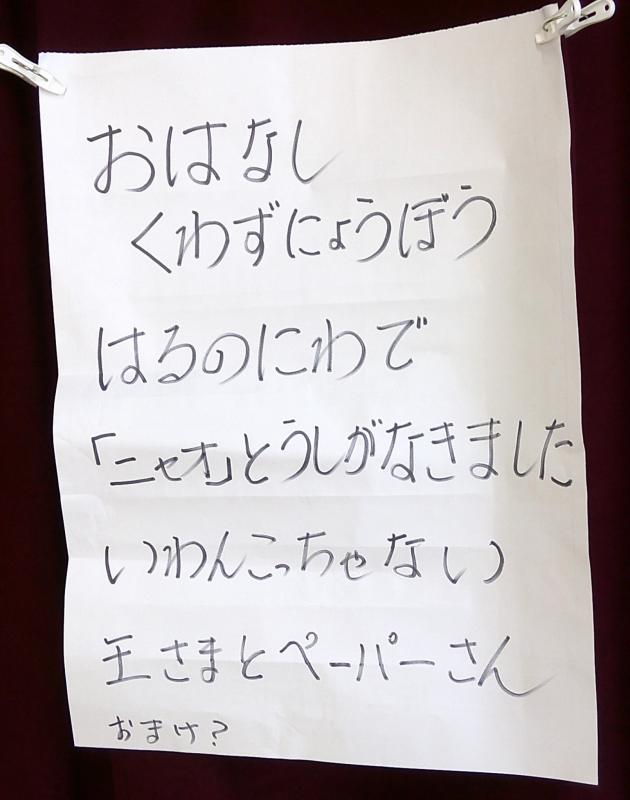 おはなし
くわずにょうぼう
はるのにわで
「ニャオ」とうしがなきました
いわんこっちゃない
王さまとペーパーさん
おまけ?